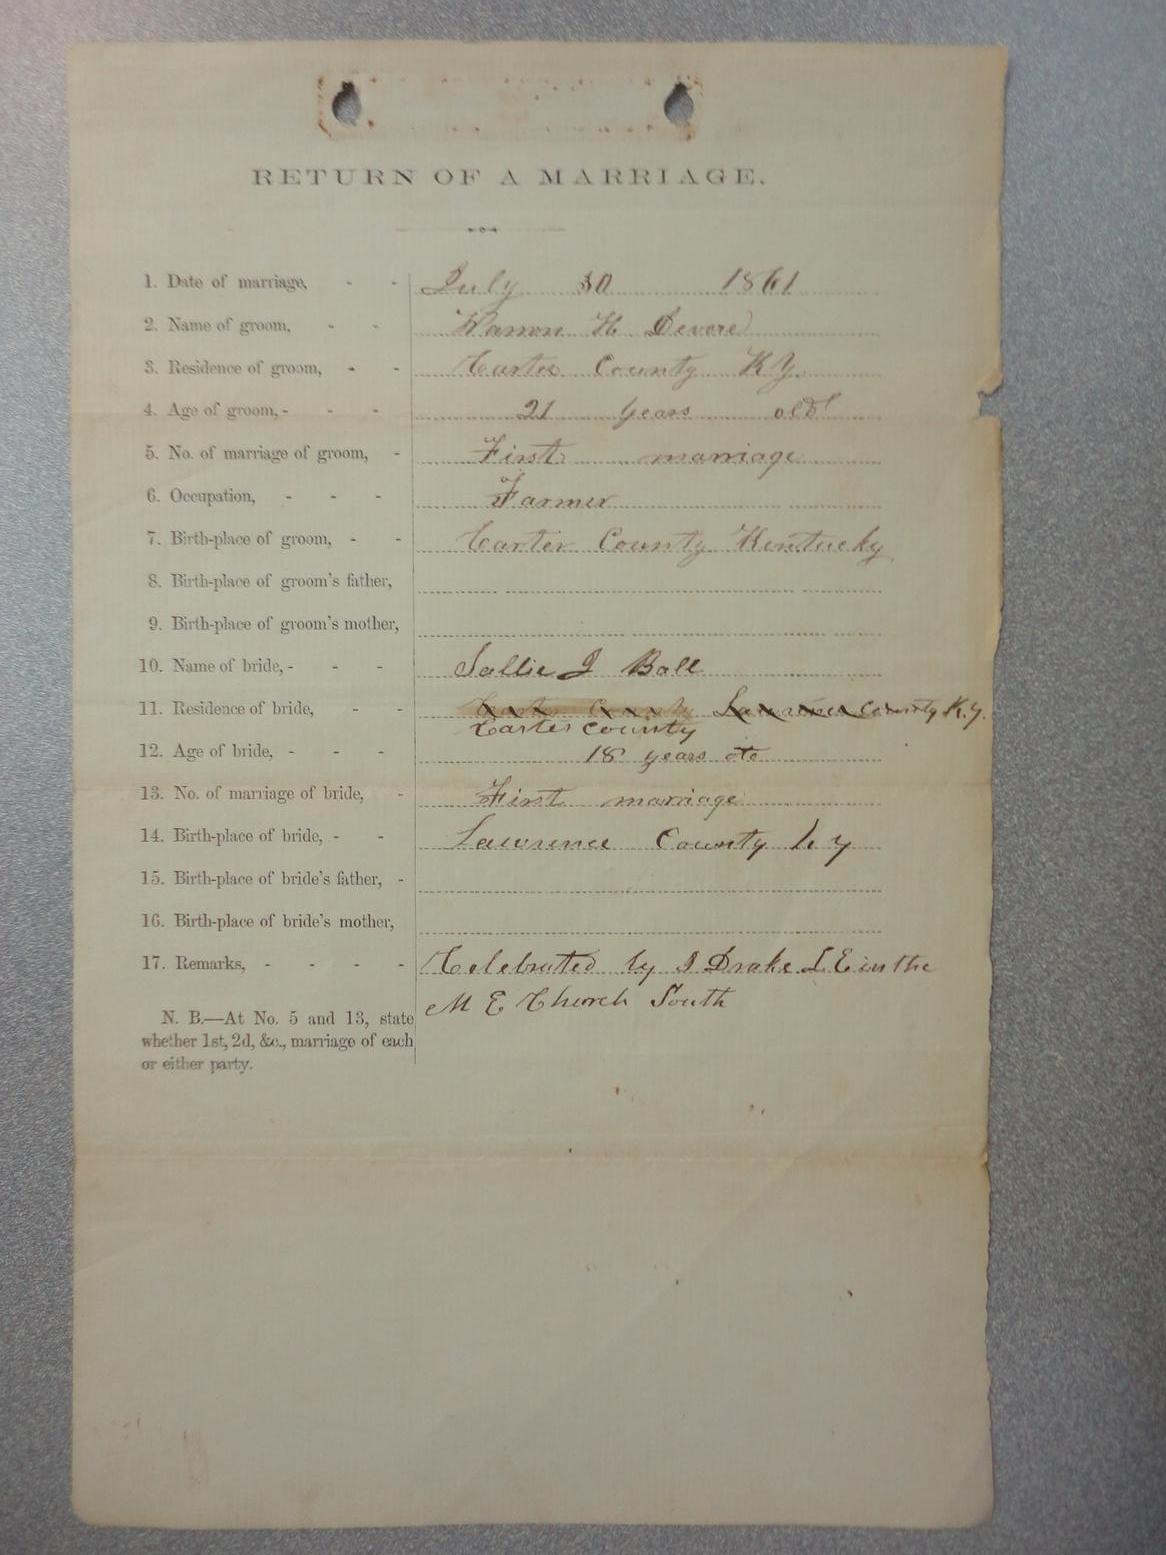 RETURN OF A MARRIAGE.
1. Date of marriage, - - July 30 1861
2. Name of groom, - - H Devore
3. Residence of groom, - - Carter County KY.
4. Age of groom, - - - 21 years old
5. No. of marriage of groom, - First marriage
6. Occupation, - - - Farmer
7. Birth-place of groom, - - Carter County Kentucky
8. Birth-place of groom's father,
9. Birth-place of groom's mother,
10. Name of bride, - - - Sallie J Ball
11. Residence of bride, - - Carter County Lawrence County K.y.
Carter county
12. Age of bride, - - - 18 years
13. No. of marriage of bride, - First marriage
14. Birth-place of bride, - - Lawrence County ky
15. Birth-place of bride's father, -
16. Birth-place of bride's mother,
17. Remarks, - - - - Celebrated by J Drake L E in the
M E Church South
N. B.—At No. 5 and 13, state
whether 1st, 2d, &c., marriage of each
or either party.